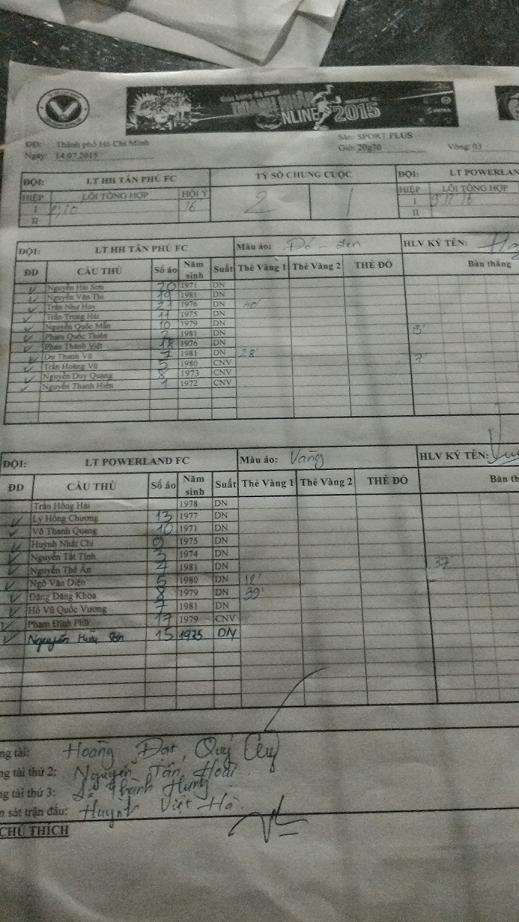 DOANH NHÂN
ONLINE 2015
ĐĐ: Thành phố Hồ Chí Minh Sân: SPORT PLUS
Ngày: 14.07.2015 Giờ: 20g30 Vòng: 03
ĐỘI: LT HH TÂN PHÚ FC TỶ SỐ CHUNG CUỘC ĐỘI: LT POWERLAN
HIỆP LỖI TỔNG HỢP HỘI Ý 2 1 HIỆP LỖI TỔNG HỢP
I 16' I
II II
ĐỘI: LT HH TÂN PHÚ FC Màu áo: Đỏ - đen HLV KÝ TÊN:
ĐD CẦU THỦ Số áo Năm sinh Suất Thẻ Vàng 1 Thẻ Vàng 2 THẺ ĐỎ Bàn thắng
Nguyễn Hải Sơn 20 1971 DN
Nguyễn Văn Thi 19 1981 DN
Trần Như Huy 21 1976 DN
Trần Trung Hải 11 1975 DN
Nguyễn Quốc Mẫn 10 1979 DN 3'
Phạm Quốc Thiên 2 1981 DN
Phan Thành Việt 18 1976 DN
Dư Thanh Vũ 7 1981 DN 28' 7'
Trần Hoàng Vũ 5 1980 CNV
Nguyễn Duy Quang 8 1973 CNV
Nguyễn Thanh Hiền 1 1972 CNV
ĐỘI: LT POWERLAND FC Màu áo: Vàng HLV KÝ TÊN:
ĐD CẦU THỦ Số áo Năm sinh Suất Thẻ Vàng 1 Thẻ Vàng 2 THẺ ĐỎ Bàn th
Trần Hồng Hải 1978 DN
Lý Hồng Chương 13 1977 DN
Võ Thanh Quang 10 1971 DN
Huỳnh Nhất Chi 9 1975 DN
Nguyễn Tất Tính 3 1974 DN
Nguyễn Thế Ân 4 1981 DN 37'
Ngô Văn Diện 5 1980 DN 12'
Đặng Đăng Khoa 8 1979 DN 39'
Hồ Vũ Quốc Vương 7 1981 DN
Phạm Đình Phú 17 1979 CNV
Nguyễn Hữu 15 1975 DN
ng tài: Hoàng Đạt, Quý
ng tài thứ 2: Nguyễn Tấn, Hoài
ng tài thứ 3: Thành Hưng
n sát trận đấu: Huỳnh Việt Hà
CHÚ THÍCH